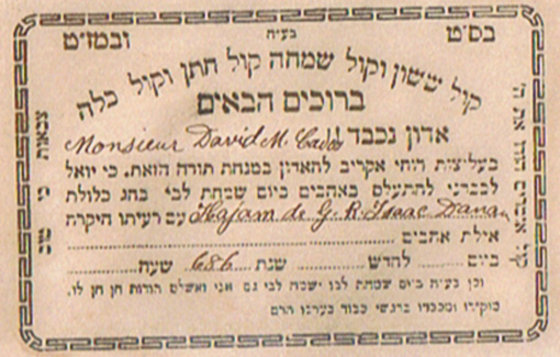 בס״ט ובמז״ט
בע״ה
קול ששון וקול שמחה קול חתן וקול כלה
ברוכים הבאים
אדון נכבד
Monsieur David M.
בעליצות רוחי אקריב להאדון במנחת תורה הזאת, כי יואל
לכבדני להתעלס באהבים ביום שמחת לבי בחג כלולת
Hajam de G. R. Isaac Danan עם רעיתו היקרת
אילת אהבים
ביום לחדש שנת 686 שעה
וכן בע״ה ביום שמחת לבו ישמח לבי גם אני ואשלם תודות חן חן לו,
מוקירו ומכבדו ברגשי כבוד בערכו הרם
קול אמרים הודו את ה׳
צבאות כי טוב